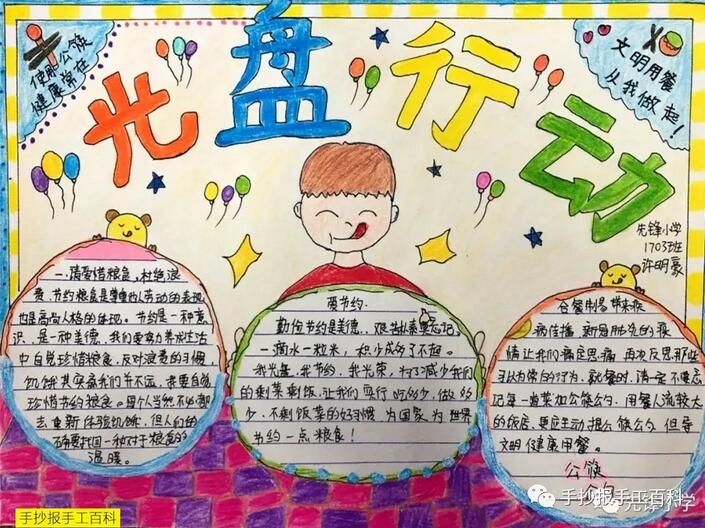 使用公筷
健康常在
光盘行动
文明用餐
从我做起!
先锋小学
1703班
许明豪
一.请爱惜粮食,杜绝浪
费.节约粮食是尊重他人劳动的表现
也是高尚人格的体现。节约是一种意
识,是一种美德,我们要努力养成生活
中自觉珍惜粮食,反对浪费的习惯
饥饿其实离我们并不远,我要自觉
珍惜节约粮食。
去重新体验饥饿,但人们的
温暖。
要节约.
勤俭节约是美德,
一滴水一粒米,积少成多了不起。
我光盘,我节约,我光荣,为了减少我们
的剩菜剩饭,让我们实行吃多少,做多
少,不剩饭菜的好习惯,为国家为世界
节约一点粮食!
合餐制易带来疾
病传播,新冠肺炎的疫
情让我们痛定思痛,再次反思那些
习以为常的行为,就餐时,请一定不要忘
记每一道菜加公筷公勺,用餐人流较大
的饭店,更应主动提公筷公勺,倡导
文明健康用餐。
公筷
公勺
手抄报手工百科
手抄报手工百科
先锋小学